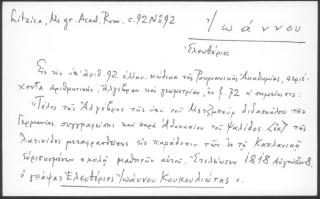 Litzica, Ms gr. Acad. Rom. c. 92 No 92
Ἰωάννου
Ἐλευθέριος
Εἰς τὸν ὑπ' ἀριθ. 92 ἑλλην. κώδικα τῆς Ρουμανικῆς Ἀκαδημίας, περιέ-
χοντα ἀριθμητικήν, ἄλγεβραν καὶ γεωμετρίαν, ἐν f. 72 ἡ σημείωσις:
«Τέλος τῆς Ἀλγέβρας τῆς ὑπὸ τοῦ Μετζμποὺρ διδασκάλου τῆς
Γερμανίας συγγραφείσης καὶ παρὰ Ἀθανασίου τοῦ Ψαλίδα ἐκ τῆς
λατινίδος μεταφρασθείσης εἰς παράδοσιν τῶν ἐν τῇ Καπλανικῇ
σχολῇ μαθητῶν αὐτοῦ. Ἐτελείωσεν 1818 Αὐγούστου 8.
ὁ γράψας Ἐλευθέριος Ἰωάννου Κουκουλιώτης».